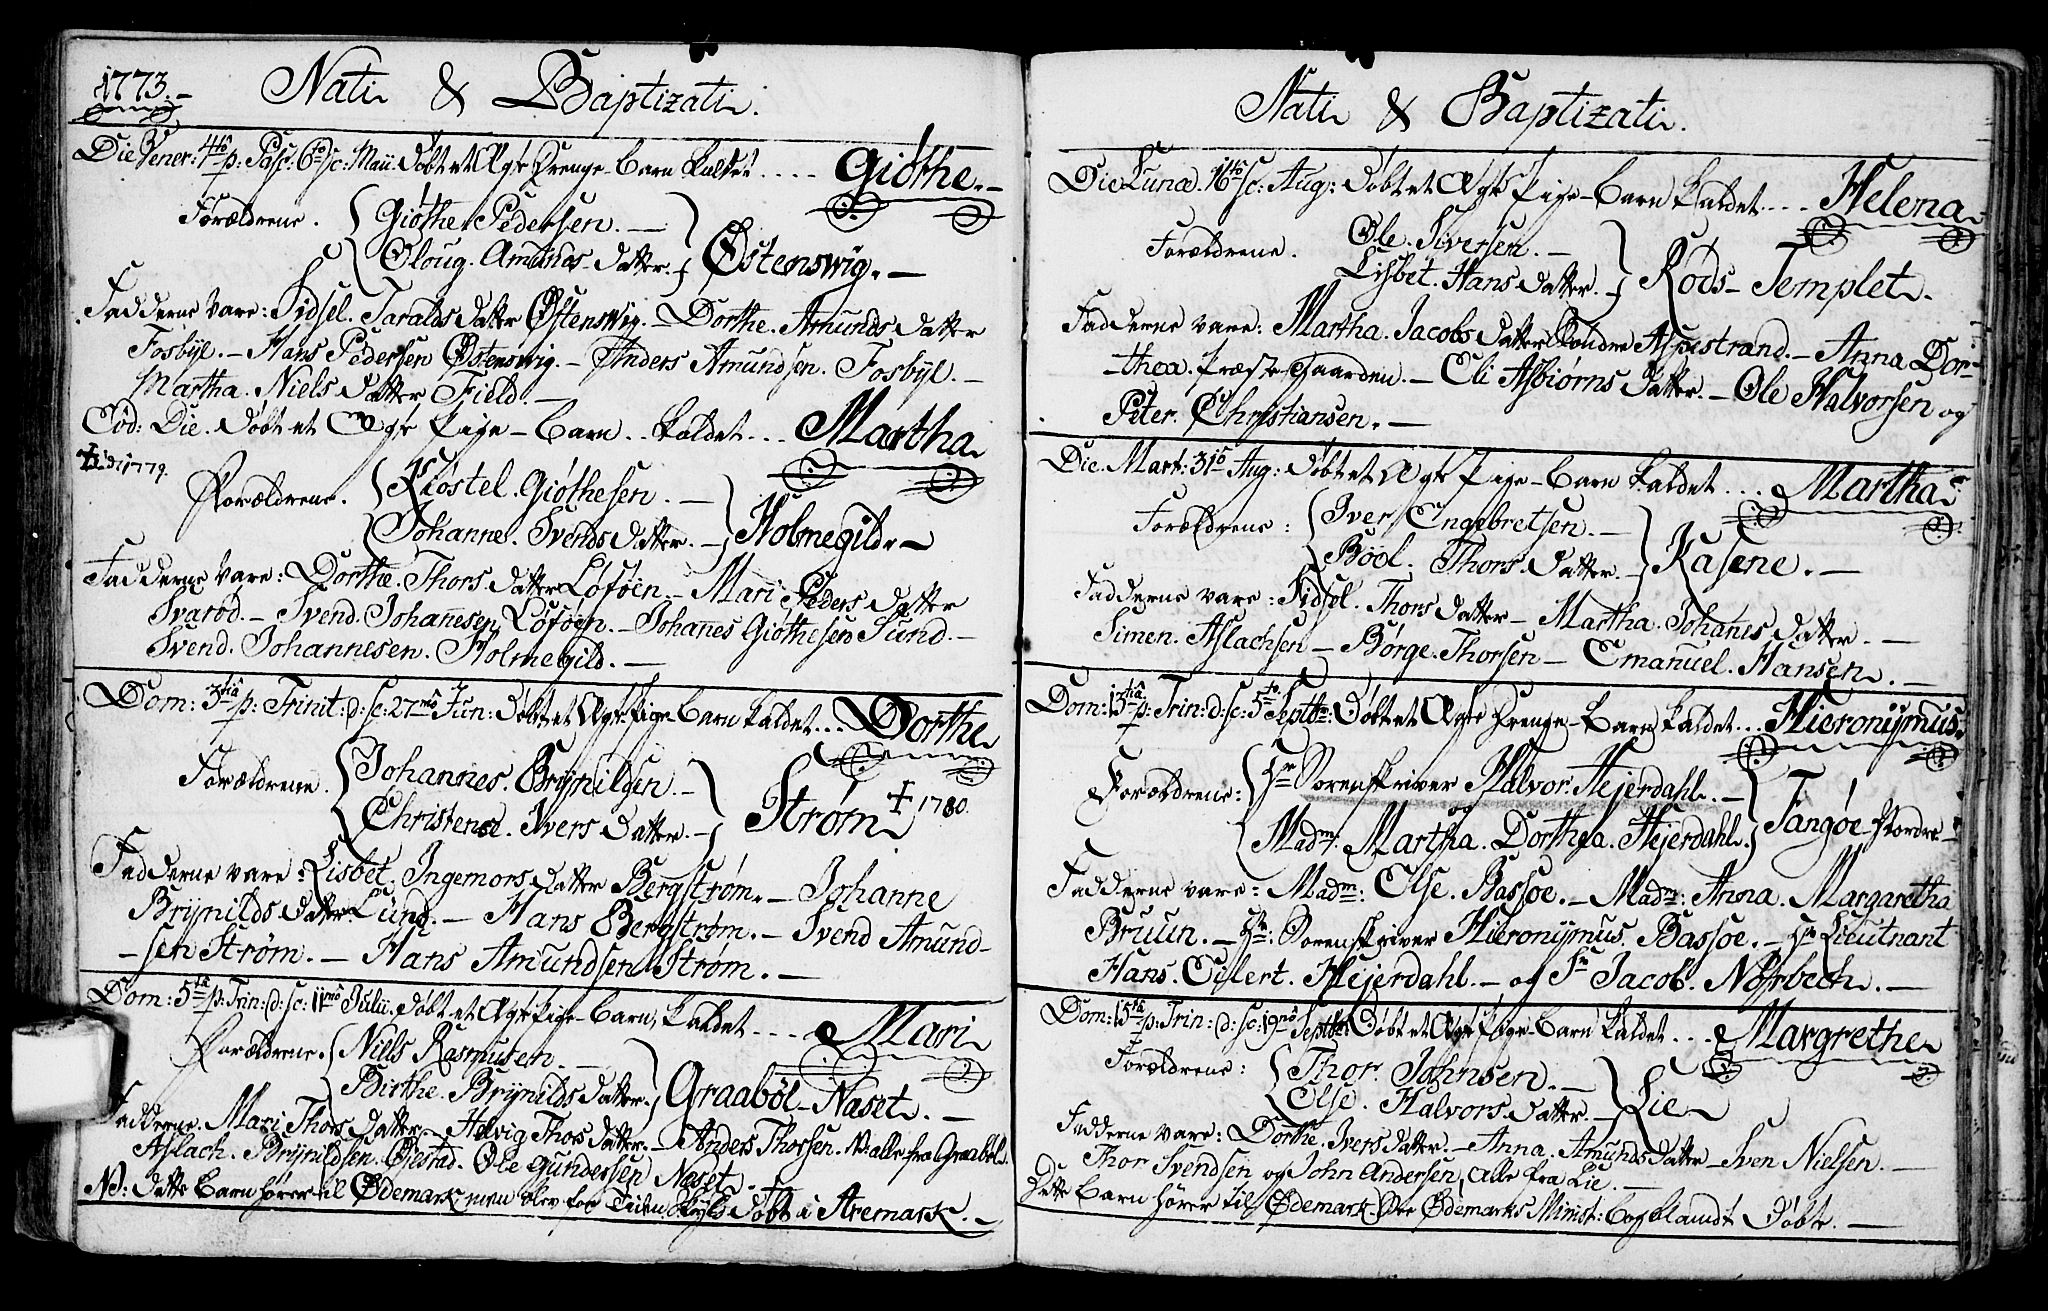 1773.
Nati & Baptizati.
Die Vener: 4to p: Pasc: 6to sc: Maii Døbt et Ægte Drenge-Barn kaldet .... Giøthe.
Forældrene. Giøthe Pedersen. —
Oloug. Amunds Datter. Østenswig. —
Fadderne vare: Sidsel. Taralds Datter Østenswig. — Dorthe. Amunds Datter
Fosbÿe. — Hans Pedersen Østenswig. — Anders Amundsen. Fosbÿe. —
Martha. Niels Datter Field. —
Eod: Die. Døbt et Ægte Pige-Barn .. kaldet ... Martha
1779.
Forældrene. Kiøstel. Giøthesen. —
Johanne. Svends Datter. — Holmegild. —
Fadderne vare: Dorthe. Thors Datter Løføen. — Mari Peders Datter
Svarød. — Svend. Johannesen Løføen. — Johannes Giøthesen Sund. —
Svend. Johannesen. Holmegild. —
Dom: 3tia p: Trinit: d: sc: 27mo Jun: Døbt et Ægte Pige-Barn kaldet ... Dorthe
Forældrene. Johannes. Brÿnildsen. —
Christense. Ivers Datter. — Strøm † 1780.
Fadderne vare: Lisbet. Ingemors Datter Bergstrøm. — Johanne
Brÿnilds Datter Lund. — Hans Bergstrøm. — Svend Amund-
-sen Strøm. — Hans Amundsen Strøm. —
Dom: 5ta p: Trin: d: sc: 11mo Julii. Døbt et Ægte Pige-Barn, kaldet .... Mari
Forældrene. Niels Rasmusen —
Birthe. Brÿnilds Datter. Graabøl-Naset. —
Fadderne. Mari Thors Datter — Helvig Thors Datter. — Anders Thorsen. N: alle fra Graabøl.
Aslach. Brÿnildsen. Øiestad. Ole Gundersen Naset. —
NB: Dette Barn hører til Ødemark men blev for Tiden Skyld Døbt i Aremark. —
Nati & Baptizati.
Die Lunæ. 16to sc: Aug: Døbt et Ægte Pige-Barn kaldet .... Helena
Forældrene. Ole. Siversen. —
Lisbet. Hans Datter. — Røds-Templet.
Fadderne vare: Martha. Jacobs Datter Søndre Aspestrand. — Anna Dor-
-thea. Præste Gaarden. — Eli Asbiørns Datter. — Ole Halvorsen og
Peter. Christiansen. —
Die. Mart: 31mo Aug: Døbt et Ægte Pige-Barn kaldet .... Martha
Forældrene: Iver Engebretsen. —
Boel. Thors Datter. — Kasene. —
Fadderne vare: Sidsel. Thors Datter — Martha. Johanes Datter. —
Simen. Aslachsen — Børge. Thorsen — Emanuel. Hansen. —
Dom: 13tia p: Trin: d: sc: 5to Septbr: Døbt et Ægte Drenge-Barn kaldet ... Hieronÿmus.
Forældrene: Hr Sorenskriver Halvor. Hejerdahl. —
og
Madm: Martha. Dorthea. Hejerdahl. Tangøe-Nordre-
Fadderne vare: Madm: Else. Bassøe. — Madm: Anna. Margaretha
Bruun. — Hr: Sorenskriver Hieronÿmus. Bassøe. — Hr Lieutnant
Hans. Eilert. Hejerdahl. — og Sr Jacob. Nørbech. —
Dom: 15ta p: Trin: d: sc: 19no Septbr: Døbt et Ægte Pige-Barn kaldet ... Margrethe
Forældrene: Thor. Johnsen. —
Else. Halvors Datter. — Lie
Fadderne vare: Dorthe. Ivers Datter. — Anna. Amunds Datter — Sven Nielsen. —
Thor Svendsen og John Andersen, alle fra Lie. —
Dette Barn hører til Ødemark See Ødemarks Minist: Bog blandt Døbte. —